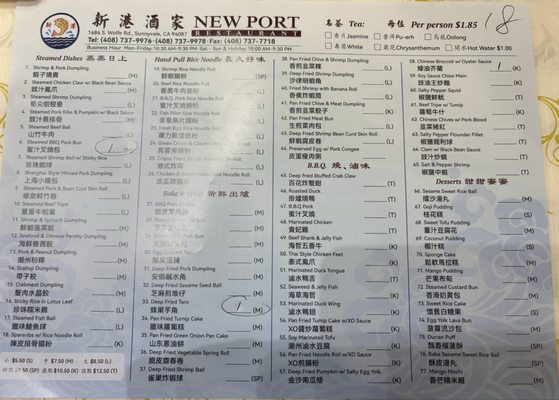 新港酒家 NEW PORT
RESTAURANT
1686 S. Wolfe Rd., Sunnyvale, CA94087
Tel: (408) 737-9976 · (408) 737-9978 Fax: (408) 737-7718
Business Hour: Mon-Friday 10:30 AM-9:30 PM · Sat - Sun & Holiday 10:00 AM-9:30 PM
茗茶 Tea: 每位 Per person $1.85 18
香片Jasmine 普洱Pu-erh 烏龍Oolong
壽眉White 菊花Chrysanthemum 開水Hot Water $1.00
Steamed Dishes 蒸蒸日上
1. Shrimp & Pork Dumpling
蝦子燒賣 (M)
2. Steamed Chicken Claw w/ Black Bean Sauce
豉汁鳳爪 (M)
3. Steamed Shrimp Dumpling
(L)
4. Steamed Pork Ribs & Pumpkin w/ Black Sauce
豉汁蒸排骨 (M)
5. Steamed Beef Ball
山竹牛肉 (L)
6. Steamed BBQ Pork Bun
蜜汁叉燒包 1 (M)
7. Steamed Shrimp Ball w/ Sticky Rice
珍珠蝦球 (L)
8. Shanghai Style Minced Pork Dumpling
上海小籠包 (L)
9. Steamed Pork & Bean Curd Skin Roll
蠔皇鮮竹卷 (L)
10. Steamed Beef Tripe
薑蔥牛柏葉 (L)
11. Shrimp & Spinach Dumpling
鮮蝦菠菜餃 (M)
12. Seafood & Chinese Parsley Dumpling
海鮮香茜餃 (M)
13. Pork & Peanut Dumpling
潮州粉粿 (M)
14. Scallop Dumpling
帶子餃 (L)
15. Crabmeat Dumpling
蟹肉水晶餃 (L)
16. Sticky Rice in Lotus Leaf
珍珠糯米雞 (L)
17. Steamed Fish Ball
(L)
18. Spareribs w/ Rice Noodle Roll
辣皮排骨腸粉 (K)
小 $5.50 (S) 中 $7.50 (M) 大 $8.50 (L)
(SP) 廚 $10.50 (K) 頂 $12.50 (T)
Hand Pull Rice Noodle 長久好味
19. Shrimp Rice Noodle Roll
鮮蝦腸粉 (SP)
20. Beef Rice Noodle Roll
香茜牛肉腸粉 (L)
21. B.B.Q. Pork Rice Noodle Roll
蜜汁叉燒腸粉 (L)
22. Fish Fillet Rice Noodle Roll
(L)
23. Fresh Egg Rice Noodle Roll
(L)
(L)
(L)
(L)
Bake & Fried 新鮮出爐
(M)
(M)
(M)
30. Deep Fried Sesame Ball
芝麻煎堆仔 (M)
31. Deep Fried Pork Dumpling
安蝦鹹水角 (M)
32. Deep Fried Sesame Seed Ball
(M)
33. Deep Fried Taro
蜂巢芋角 1 (M)
34. Pan Fried Turnip Cake
臘味蘿蔔糕 (M)
35. Pan Fried Green Onion Pan Cake
山東蔥油餅 (M)
36. Deep Fried Vegetable Spring Roll
脆皮齋春卷 (M)
37. Deep Fried Shrimp Ball
雀巢炸蝦球 (SP)
38. Pan Fried Chive & Shrimp Dumpling
香煎韭菜粿 (L)
39. Deep Fried Shrimp Dumpling
沙律明蝦角 (L)
40. Fried Shrimp with Banana Roll
香蕉炸蝦筒 (L)
41. Pan Fried Chive & Meat Dumpling
香煎韭菜餃子 (K)
42. Pan Fried Meat Bun
生煎菜肉包 (L)
43. Deep Fried Shrimp Bean Curd Skin Roll
鮮蝦腐皮卷 (L)
44. Preserved Egg w/ Pork Congee
皮蛋瘦肉粥 (L)
B.B.Q. 燒、滷味
45. Deep fried Stuffed Crab Claw
百花炸蟹鉗 (T)
46. Roasted Duck
掛爐燒鴨 (T)
47. B.B.Q Pork
蜜汁叉燒 (T)
48. Marinated Chicken
貴妃雞 (T)
49. Beef Shank & Jelly Fish
海哲五香牛 (K)
50. Thai Style Chicken Feet
泰式鳳爪 (K)
51. Marinated Duck Tongue
滷水鴨舌 (T)
52. Seaweed & Jelly Fish
海草海哲 (K)
53. Marinated Duck Wing
滷水鴨翅 (K)
54. Pan Fried Turnip Cake w/XO Sauce
XO醬炒蘿蔔糕 (K)
55. Soy Marinated Tofu
潮州滷水豆腐 (K)
56. Pan Fried Noodle Roll w/XO Sauce
XO煎腸粉 (K)
57. Deep Fried Pumpkin w/ Salty Egg Yolk
金沙南瓜條 (K)
58. Chinese Broccoli w/ Oyster Sauce
蠔油芥蘭 1 (K)
59. Soy Sauce Chow Mein
豉油王炒麵 (K)
60. Salty Pepper Squid
椒鹽鮮魷 (K)
61. Beef Tripe w/ Turnip
蘿蔔牛什 (K)
62. Chinese Chives w/ Pork Blood
韭菜豬紅 (T)
63. Salty Pepper Flounder Fillet
椒鹽龍利球 (T)
64. Clam w/ Black Bean Sauce
豉汁炒蜆 (T)
65. Salt & Pepper Shrimp
椒鹽中蝦 (T)
Desserts 甜甜蜜蜜
66. Sesame Sweet Rice Ball
擂沙湯丸 (M)
67. Goji Pudding
桂花糕 (S)
68. Sweet Tofu Pudding
薑汁豆腐花 (M)
69. Coconut Pudding
椰汁糕 (S)
70. Sponge Cake
鬆軟馬拉糕 (M)
71. Mango Pudding
芒果布甸 (M)
72. Steamed Custard Bun
香滑奶黄包 (M)
73. Sweet Rice Cake
懷舊白糖糕 (S)
74. Egg Yolk Lava Bun
菠蘿流沙包 (M)
75. Durian Puff
飄香榴蓮酥 (SP)
76. Bake Sesame Sweet Rice Ball
酥皮湯丸 (SP)
77. Mango Mochi
香芒糯米糍 (M)